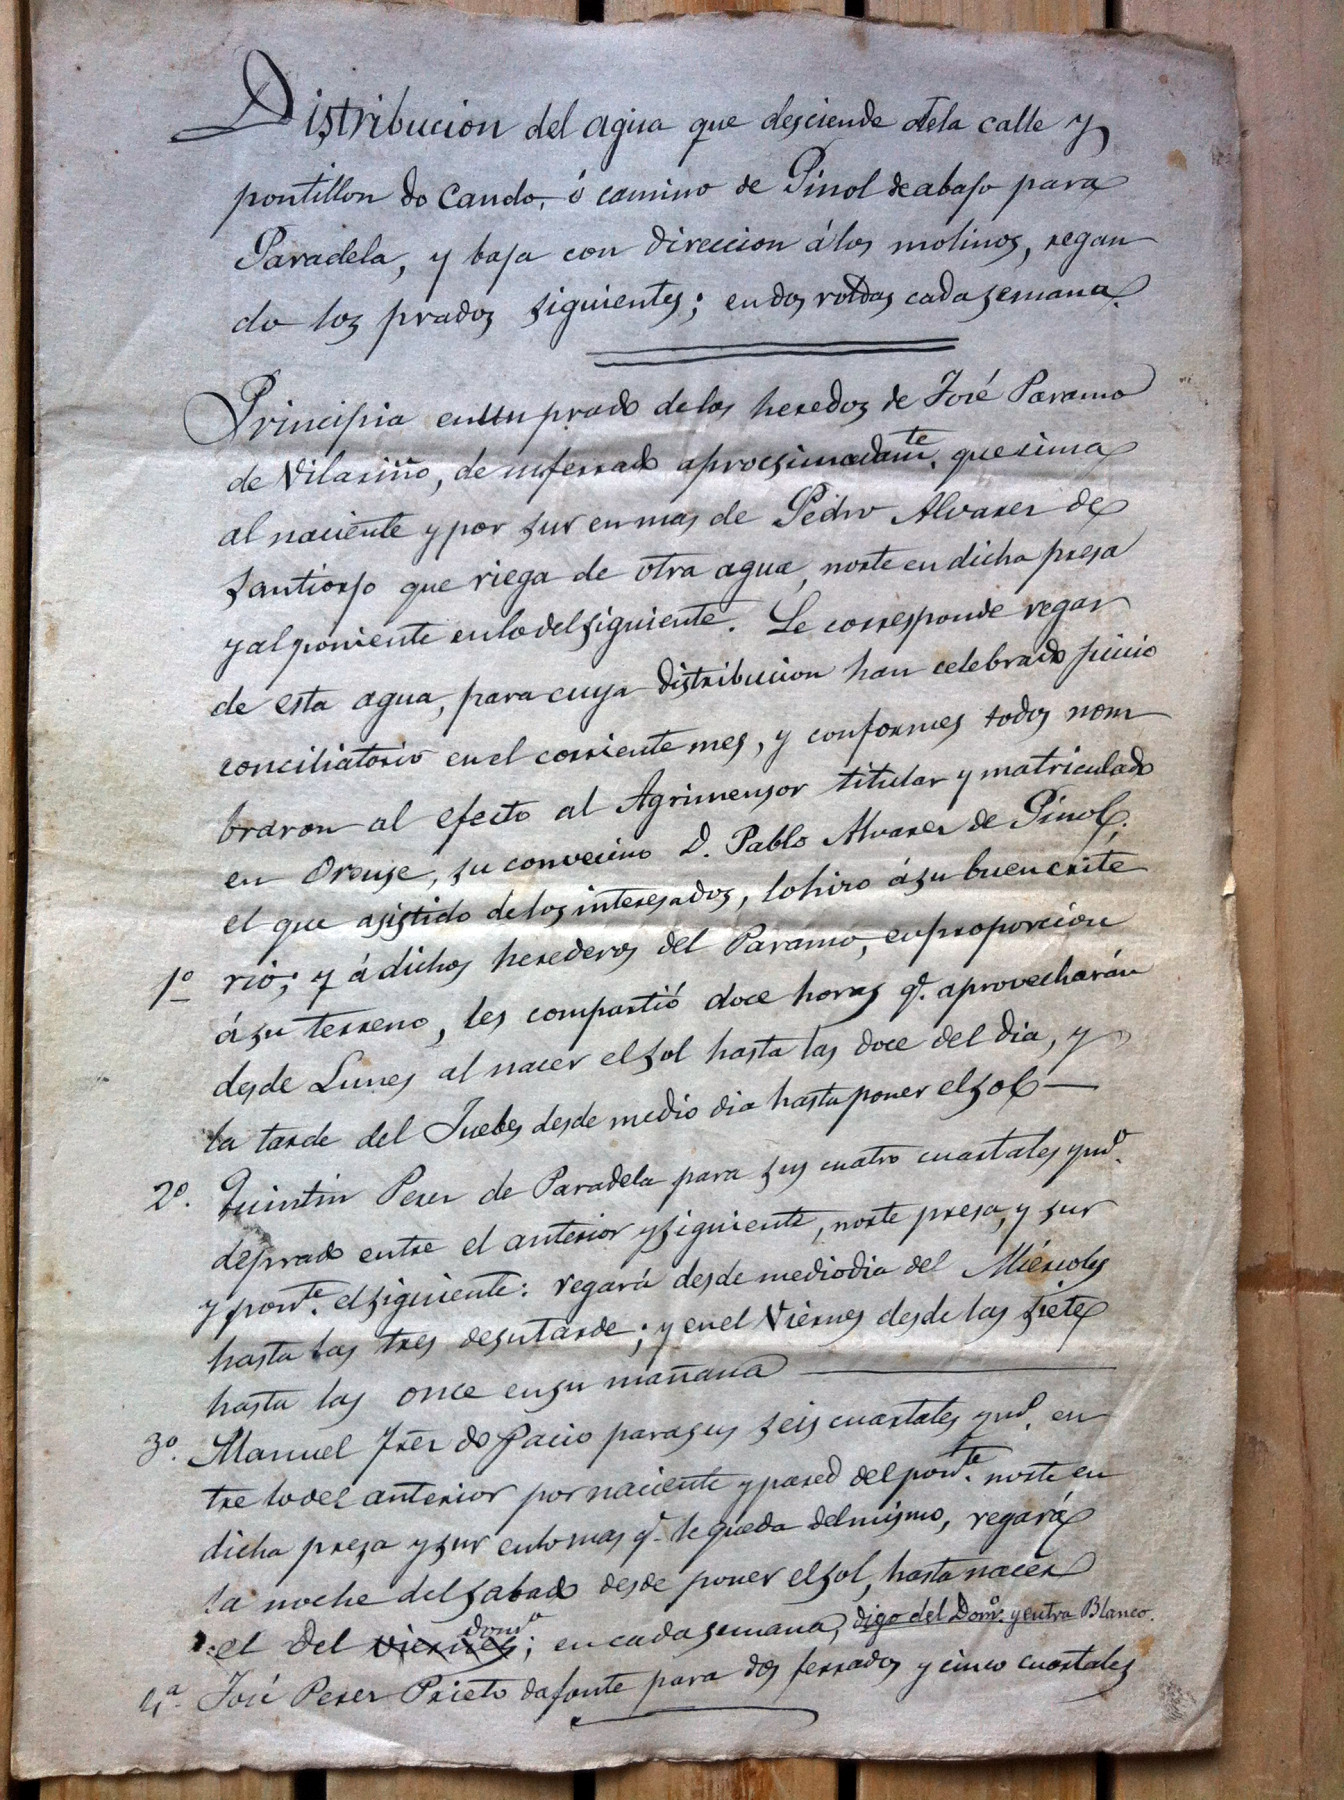 Distribucion del agua que desciende dela calle y
pontillon do Cando, ó camino de Piñol de abajo para
Paradela, y baja con direccion á los molinos, regan
do los prados siguientes; en dos roldas cada semana.
Principia en un prado delos heredos de José Paramo
de Vilariño, de un ferrado aprocsimadamte. que sima
al naciente y por sur en mas de Pedro Alvarez de
Santiorjo que riega de otra agua, norte en dicha presa
y al poniente en lo del siguiente. Le corresponde regar
de esta agua, para cuya distribucion han celebrado juicio
conciliatorio en el corriente mes, y conformes todos nom
braron al efecto al Agrimensor titular y matriculado
en Orense, su convecino D. Pablo Alvarez de Piñol;
el que asistido de los interesados, lo hizo á su buen crite
1º rio; y á dichos herederos del Paramo, en proporcion
á su terreno, les compartió doce horas q. aprovecharán
desde Lunes al nacer el sol hasta las doce del dia, y
la tarde del Juebes desde medio dia hasta poner el sol
2º. Quintin Perez de Paradela para sus cuatro cuartales y mo.
de prado entre el anterior y siguiente, norte presa, y sur
y ponte. el siguiente: regará desde mediodia del Miércoles
hasta las tres de su tarde; y en el Viernes desde las siete
hasta las once en su mañana
3º. Manuel Frez do Pacio para sus seis cuartales y mo. en
tre lo del anterior por naciente y pared del ponte. norte en
dicha presa y sur en lo mas q. le queda del mismo, regará
la noche del sabado desde poner el sol, hasta nacer
el del viernes domo; en cada semana, digo del Domo. y entra Blanco.
4ª. José Perez Prieto dafonte para dos ferrados y cinco cuartales